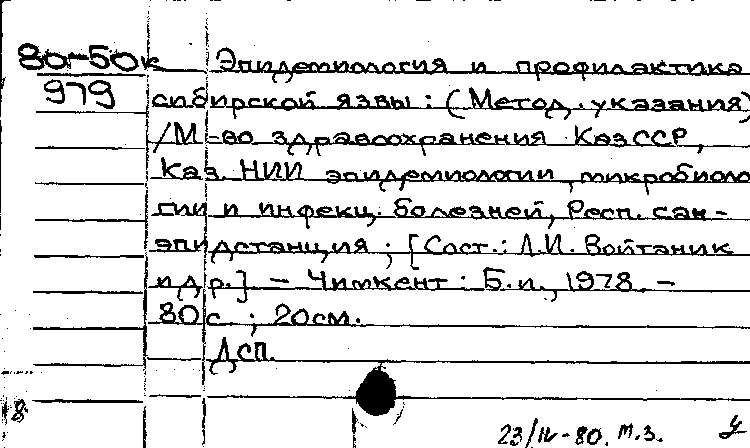 80-50к Эпидемиология и профилактика
979 сибирской язвы: (Метод. указания)
/М-во здравоохранения КазССР,
Каз. НИИ эпидемиологии, микробиоло
гии и инфекц. болезней, Респ. сан-
эпидстанция; [Сост.: Л.И. Войтаник
и др.] - Чимкент: Б.и., 1978. -
80 с.; 20 см.
Дсп.
8
23/IV-80. м.з.